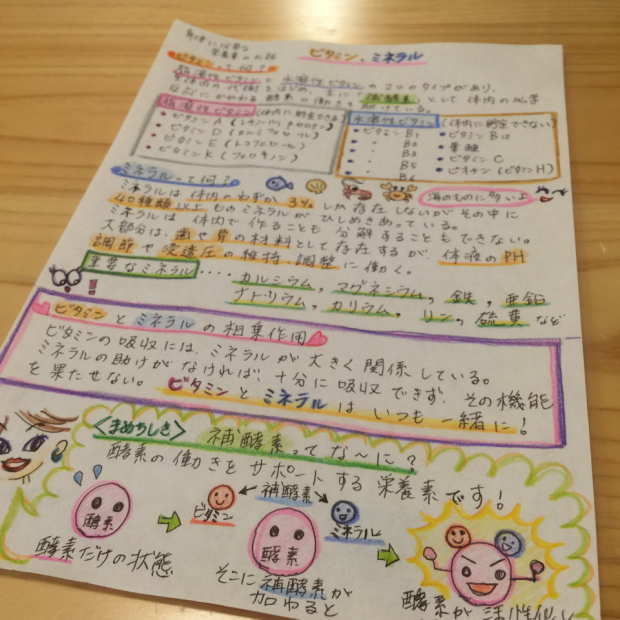 栄養素のお話
ビタミン、ミネラル
ビタミンって何？
脂溶性ビタミンと水溶性ビタミンの2つのタイプがあり、
体内の代謝をはじめ、主に"補酵素"として体内の化学
反応にかかわる酵素の働きを助けている。
脂溶性ビタミン(体内に貯金できる)
• ビタミンA
• ビタミンD
• ビタミンE
• ビタミンK
水溶性ビタミン(体内に貯金できない)
• ビタミンB1
• 〃 B2
• 〃 B3
• 〃 B5
• 〃 B6
• ビタミンB12
• 葉酸
• ビタミンC
• ビオチン(ビタミンH)
ミネラルって何？
海のものに多いよ
ミネラルは体内のわずか3%しか存在しないがその中に
40種類以上ものミネラルがひしめきあっている。
ミネラルは体内で作ることも分解することもできない。
大部分は、歯や骨の材料として存在するが、体液のPH
調節や浸透圧の維持、調整に働く。
重要なミネラル‥‥カルシウム,マグネシウム,鉄,亜鉛
ナトリウム,カリウム,リン,硫黄など
ビタミンとミネラルの相乗作用
ビタミンの吸収には、ミネラルが大きく関係している。
ミネラルの助けがなければ、十分に吸収できず、その機能
を果たせない。ビタミンとミネラルはいつも一緒に！
<まめちしき> 補酵素ってな〜に？
酵素の働きをサポートする栄養素です！
酵素
酵素だけの状態
補酵素
ビタミン
ミネラル
酵素
そこに補酵素が
加わると
酵素が活性化し